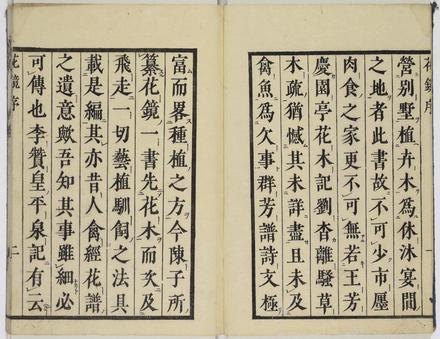 花鏡序
營別墅植卉木爲休沐宴閒
之地者此書故不可少市廛
肉食之家更不可無若王芳
慶園亭花木記劉杳離騷草
木疏猶憾其未詳盡且未及
禽魚爲欠事群芳譜詩文極
富而畧種植之方今陳子所
纂花鏡一書先花木而次及
飛走一切藝植馴飼之法具
載是編其亦昔人禽經花譜
之遺意歟吾知其事雖細必
可傳也李贊皇平泉記有云
花鏡序
二